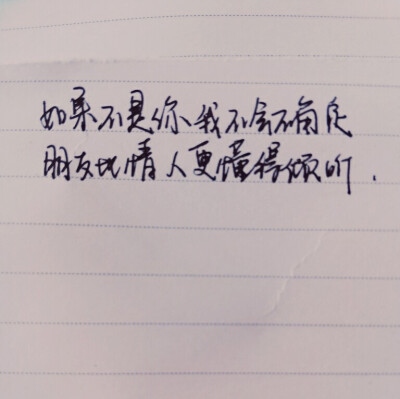 如果不是你我不会确定
朋友比情人更懂得倾听.